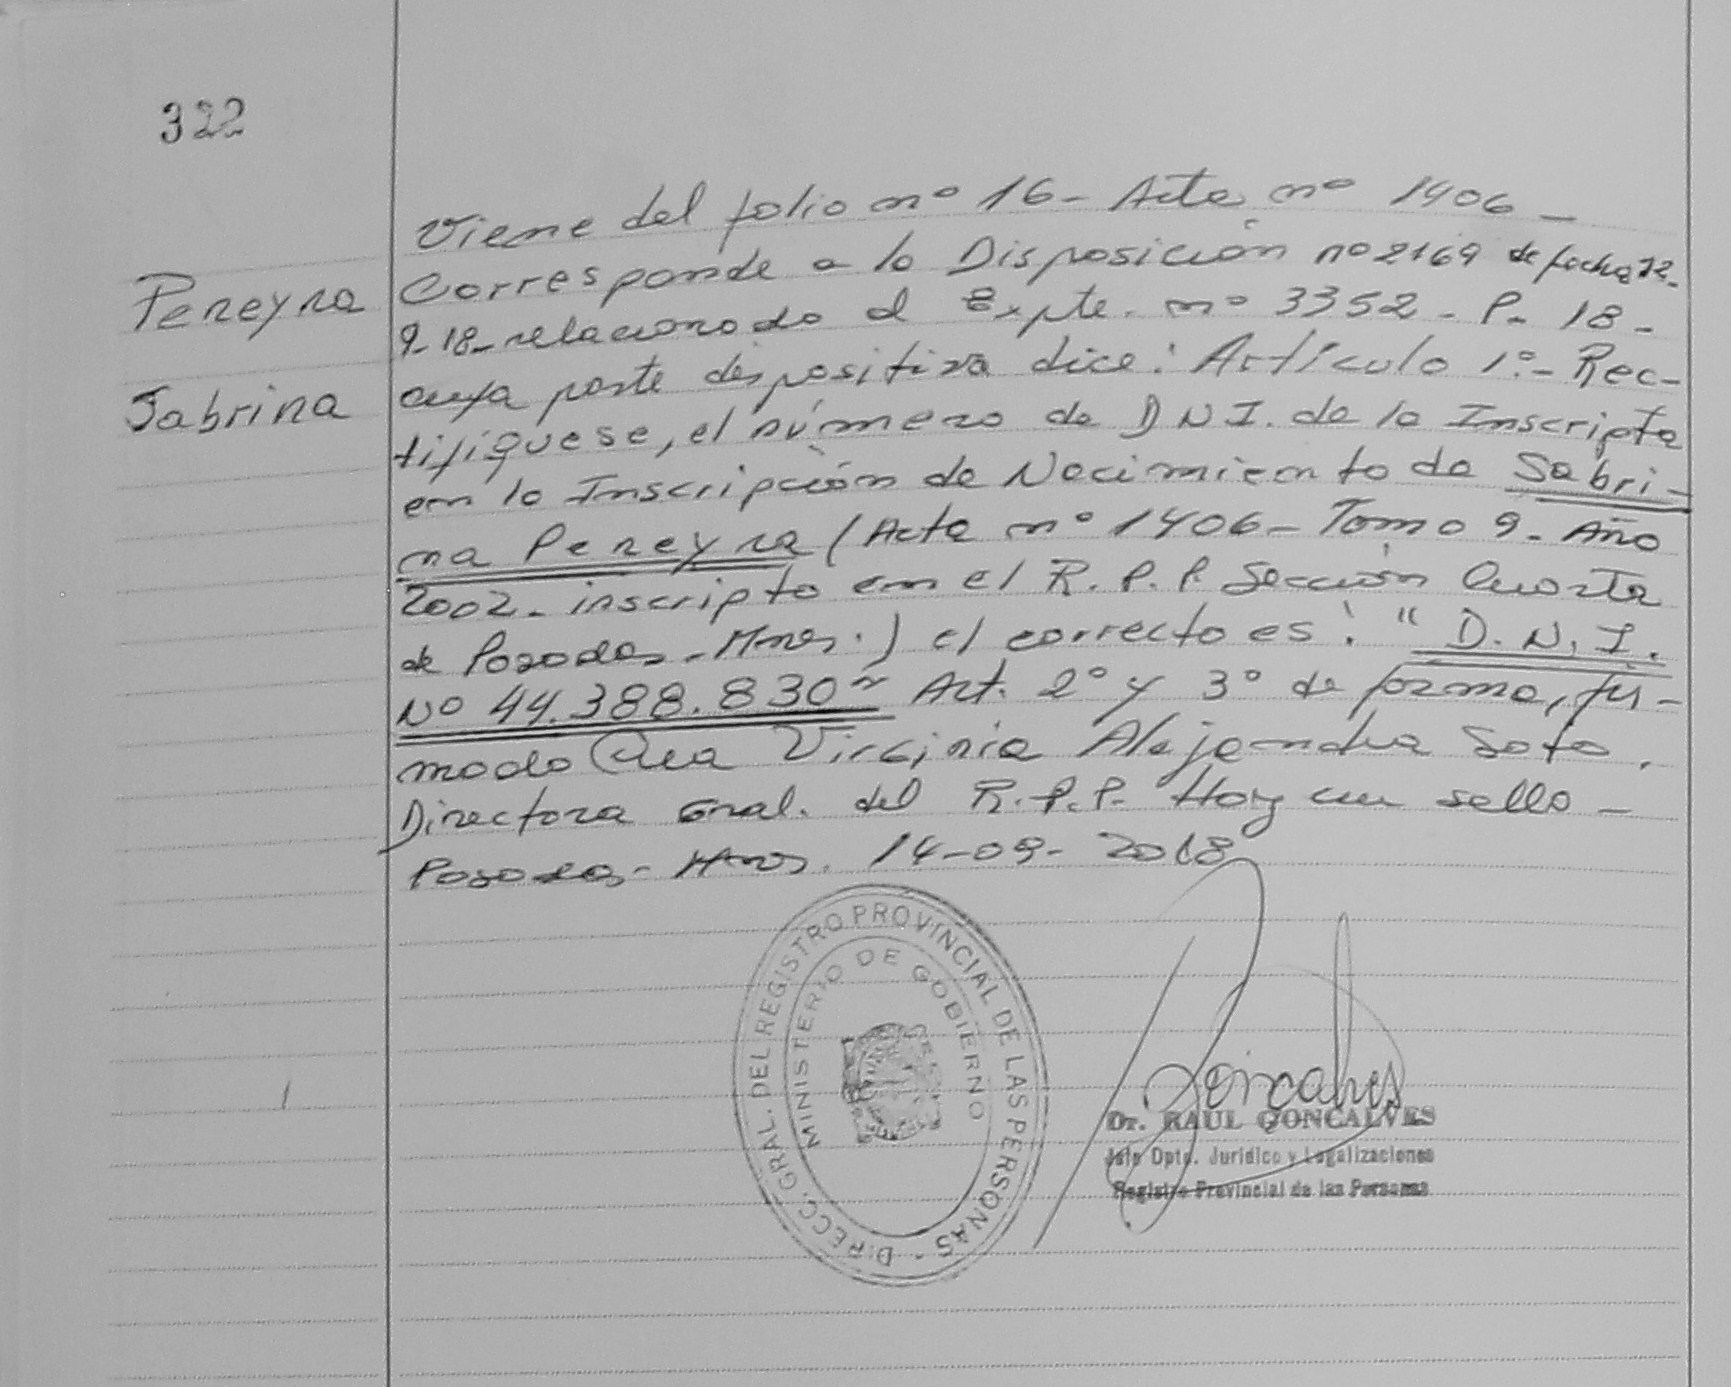 322
Pereyra
Sabrina
Viene del folio nº 16- Acta nº 1406 -
Corresponde a la Disposición nº 2169 de fecha 12-
9-18- relacionado al Expte. nº 3352 - P- 18 -
cuya parte dispositiva dice: Artículo 1º- Rec-
tifíquese, el número de D N I. de la Inscripta
en la Inscripción de Nacimiento de Sabri-
na Pereyra (Acta nº 1406- Tomo 9- Año
2002- inscripto en el R. P. P. Sección Cuarta
de Posadas - Mnes.) el correcto es: "D. N. I.
Nº 44.388.830" Art. 2º y 3º de forma, fir-
mado Virginia Alejandra Soto.
Directora Gral. del R.P.P. Hay un sello -
Posadas- Mnes. 14-09- 2018
DIRECC. GRAL. DEL REGISTRO PROVINCIAL DE LAS PERSONAS -
MINISTERIO DE GOBIERNO
Dr. RAUL GONCALVES
Jefe Dpto. Jurídico y Legalizaciones
Registro Provincial de las Personas